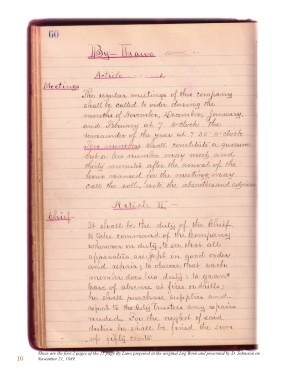 60
By-Laws
Article
Meetings
The regular meetings of this company
shall be called to order during the
months of November, December, January,
and February at 7 o'clock the
remainder of the year at 7 30" o'clock
Ten members shall constitute a quorum
but a less number may meet and
thirty minutes after the arrival of the
hour named for the meeting may
call the roll, note the absentees and adjourn
Article II -
Chief
It shall be the duty of the Chief
to take command of the Company
whenever on duty, to see that all
apparatus are kept in good order
and repair, to observe that each
member does his duty; to grant
leave of absence at fires or drills;
he shall purchase supplies and
report to the City Trustees any repairs
needed. For the neglect of said
duties he shall be fined the sum
of fifty cents.
Above are the first 2 pages of the 17 page By Laws prepared in the original Log Book and presented by D. Johnson on
November 21, 1884
10